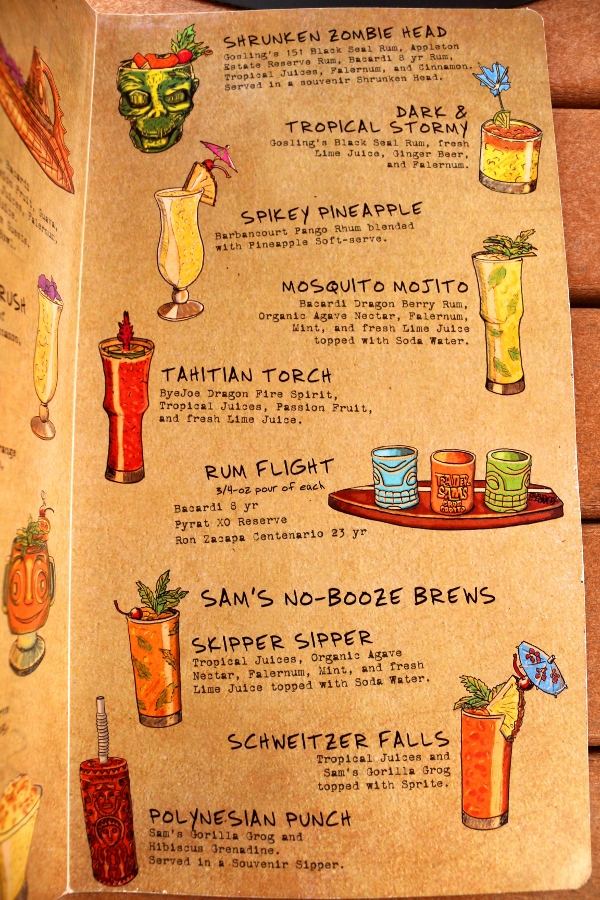 SHRUNKEN ZOMBIE HEAD
Gosling's 151 Black Seal Rum, Appleton
Estate Reserve Rum, Bacardi 8 yr Rum,
Tropical Juices, Falernum, and Cinnamon.
Served in a souvenir Shrunken Head.
DARK &
TROPICAL STORMY
Gosling's Black Seal Rum, fresh
Lime Juice, Ginger Beer,
and Falernum.
SPIKEY PINEAPPLE
Barbancourt Pango Rhum blended
with Pineapple Soft-serve.
MOSQUITO MOJITO
Bacardi Dragon Berry Rum,
Organic Agave Nectar, Falernum,
Mint, and fresh Lime Juice
topped with Soda Water.
TAHITIAN TORCH
ByeJoe Dragon Fire Spirit,
Tropical Juices, Passion Fruit,
and fresh Lime Juice.
RUM FLIGHT
3/4-oz pour of each
Bacardi 8 yr
Pyrat XO Reserve
Ron Zacapa Centenario 23 yr
TRADER
SAM'S
GROG
GROTTO
SAM'S NO-BOOZE BREWS
SKIPPER SIPPER
Tropical Juices, Organic Agave
Nectar, Falernum, Mint, and fresh
Lime Juice topped with Soda Water.
SCHWEITZER FALLS
Tropical Juices and
Sam's Gorilla Grog
topped with Sprite.
POLYNESIAN PUNCH
Sam's Gorilla Grog and
Hibiscus Grenadine.
Served in a Souvenir Sipper.